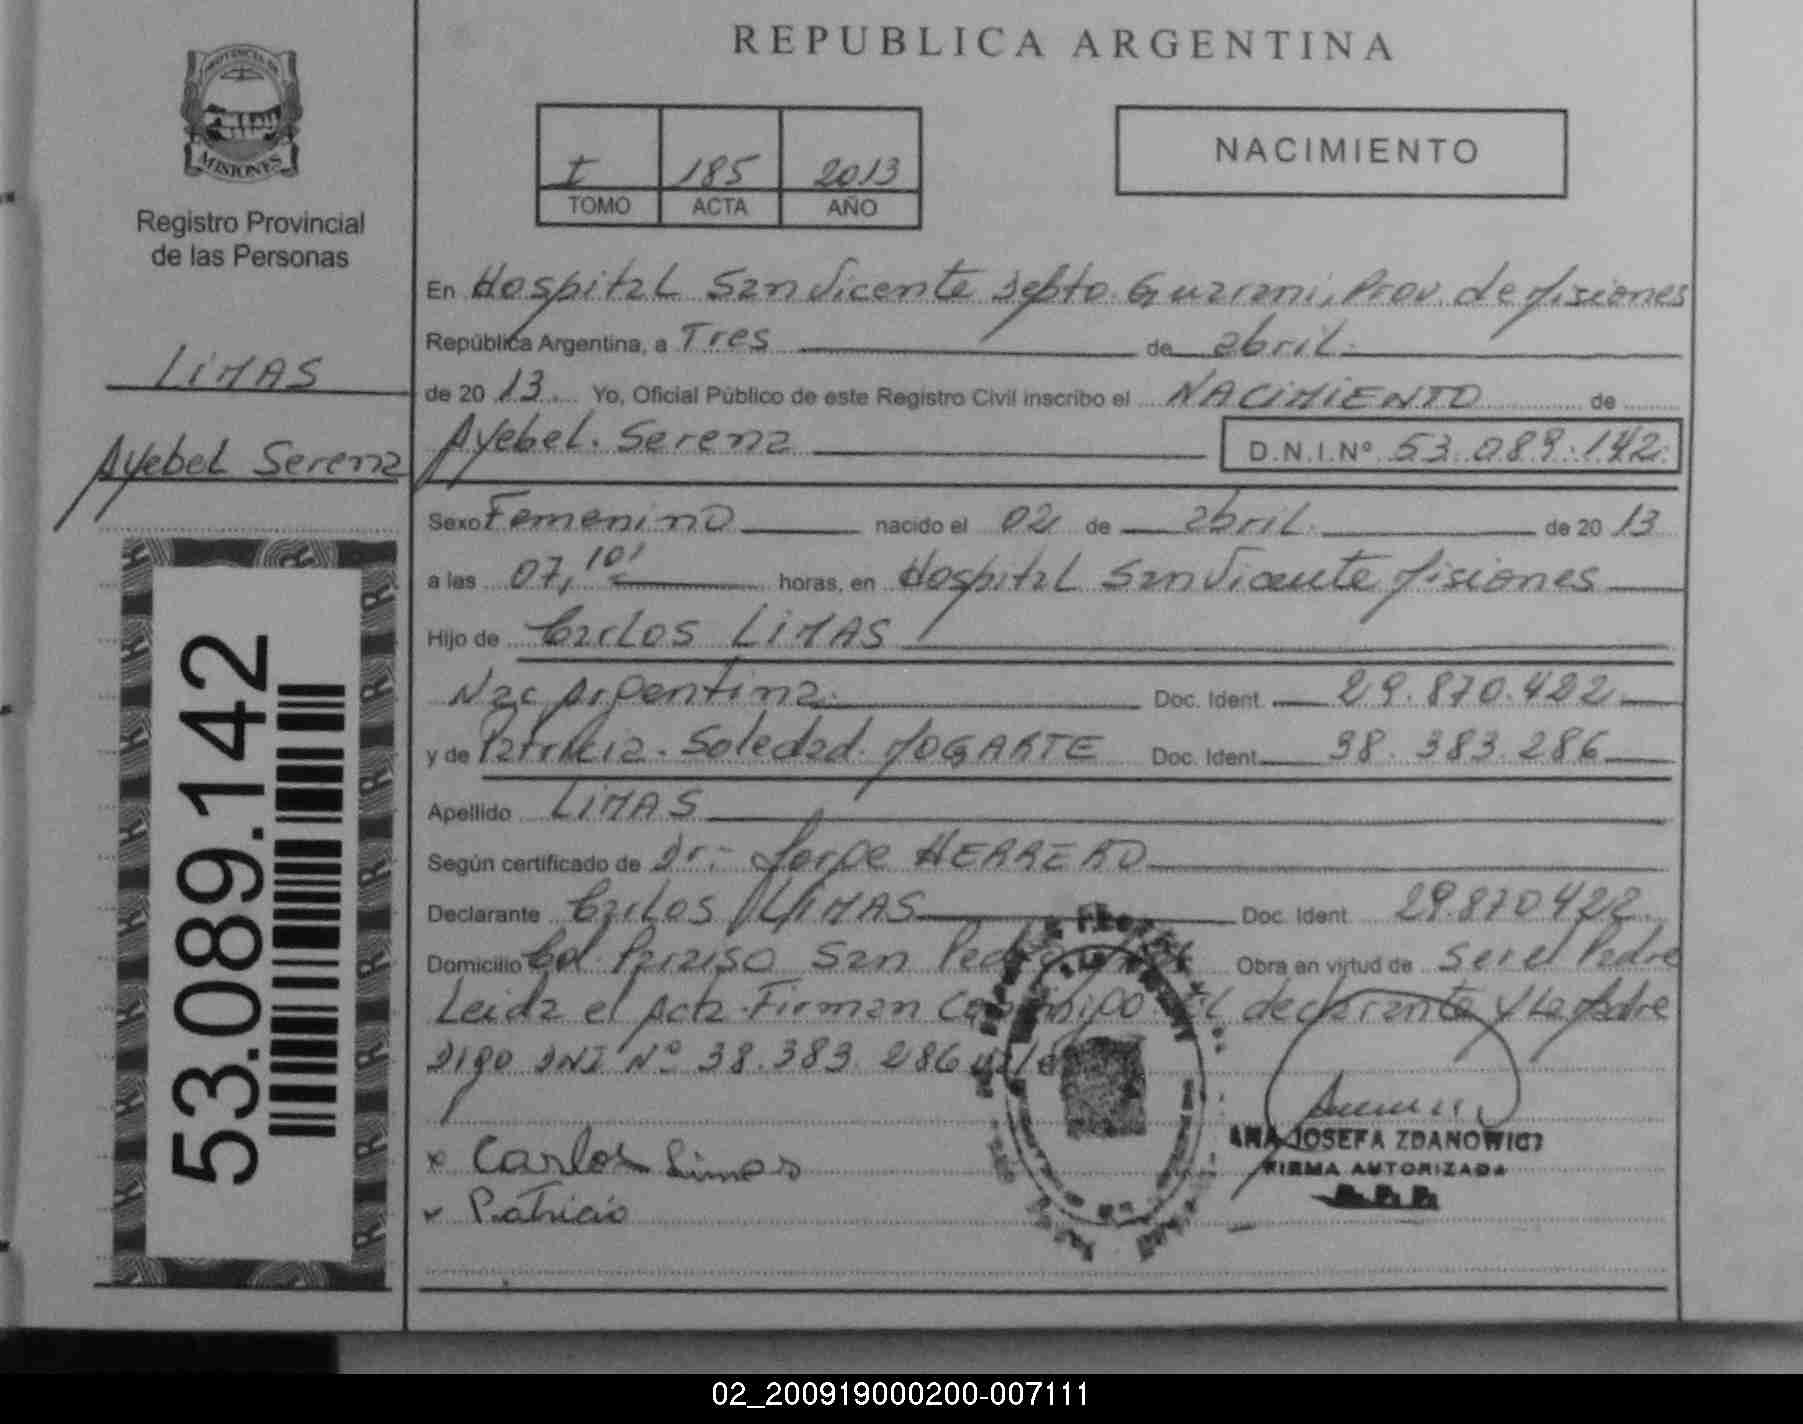 REPUBLICA ARGENTINA
PROVINCIA DE
MISIONES
Registro Provincial
de las Personas
I 185 2013
TOMO ACTA AÑO
NACIMIENTO
LIMAS
Ayebel Serena
53.089.142
En Hospital San Vicente Depto. Guarani, Prov. de Misiones
República Argentina, a Tres de abril.
de 20 13. Yo, Oficial Público de este Registro Civil inscribo el NACIMIENTO de
Ayebel. Serena D.N.I.Nº 53.089.142.
Sexo Femenino nacido el 02 de abril. de 20 13
a las 07,10' horas, en Hospital San Vicente Misiones
Hijo de Carlos LIMAS
Nac Argentina. Doc. Ident. 29.870.422
y de Patricia. Soledad. MOGARTE Doc. Ident. 38.383.286
Apellido LIMAS
Según certificado de Dr. Jorge HERRERO
Declarante Carlos LIMAS Doc. Ident. 29.870422.
Domicilio Col Paraiso San Pedro Obra en virtud de Ser el Padre
Leida el Acta Firman Conmigo El declarante y La Madre
Digo DNI Nº 38.383.286 vale
x Carlos Limas
x Patricia
ANA JOSEFA ZDANOWICZ
FIRMA AUTORIZADA
R. P. P.
02_200919000200-007111